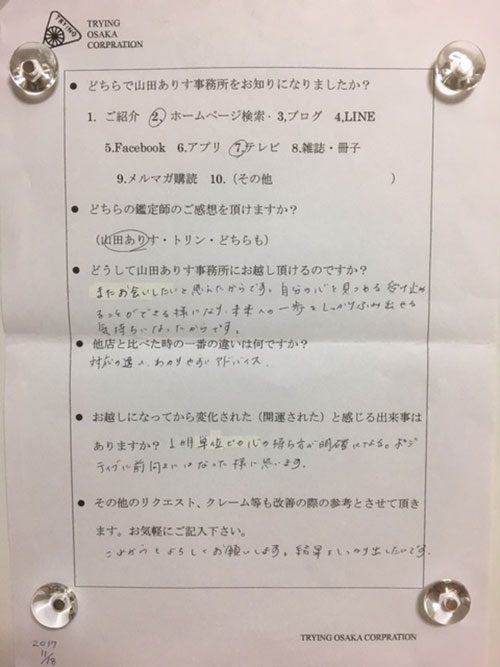 TRYING
TRYING
OSAKA
CORPRATION
● どちらで山田ありす事務所をお知りになりましたか？
1. ご紹介 2, ホームページ検索・3,ブログ 4,LINE
5.Facebook 6.アプリ 7,テレビ 8.雑誌・冊子
9.メルマガ購読 10.（その他 ）
● どちらの鑑定師のご感想を頂けますか？
（山田ありす・トリン・どちらも）
● どうして山田ありす事務所にお越し頂けるのですか？
またお会いしたいと思えたからです。自分の心を見つめる受け止め
ることができる様になり、未来への一歩をしっかりふみ出せる
気持ちになったからです。
● 他店と比べた時の一番の違いは何ですか？
対応の違い、わかりやすいアドバイス
● お越しになってから変化された（開運された）と感じる出来事は
ありますか？ 1ヵ月単位での心の持ち方が明確にできる。ポジ
ティブに前向きにはなった様に思います。
● その他のリクエスト、クレーム等も改善の際の参考とさせて頂き
ます。お気軽にご記入下さい。
これからもよろしくお願いします。結果をしっかり出したいです。
TRYING OSAKA CORPRATION
2017
11/18